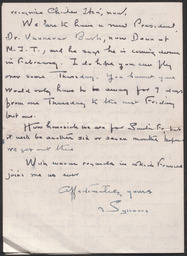 require
We are to have a new President
Dr. Vannevar Bush, now Dean at
M.I.T., and he says he is coming down
in February. I do hope you can fly
over some Thursday. You
would only have to be away for 9 days
from one Thursday to the next Friday
but one.
How homesick we are for but
it will be another six or seven months before
we get out there
With warm regards in which Frances
joins me as ever
Affectionately yours